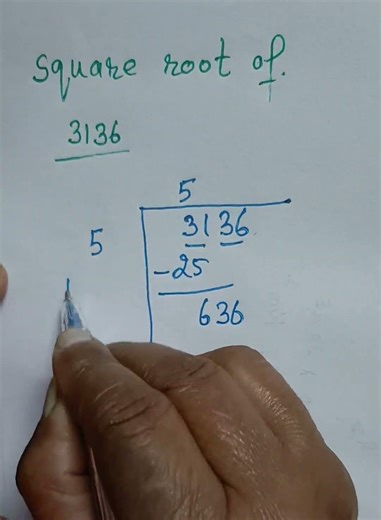 Square root of.
3136
5
5 3136
-25
636